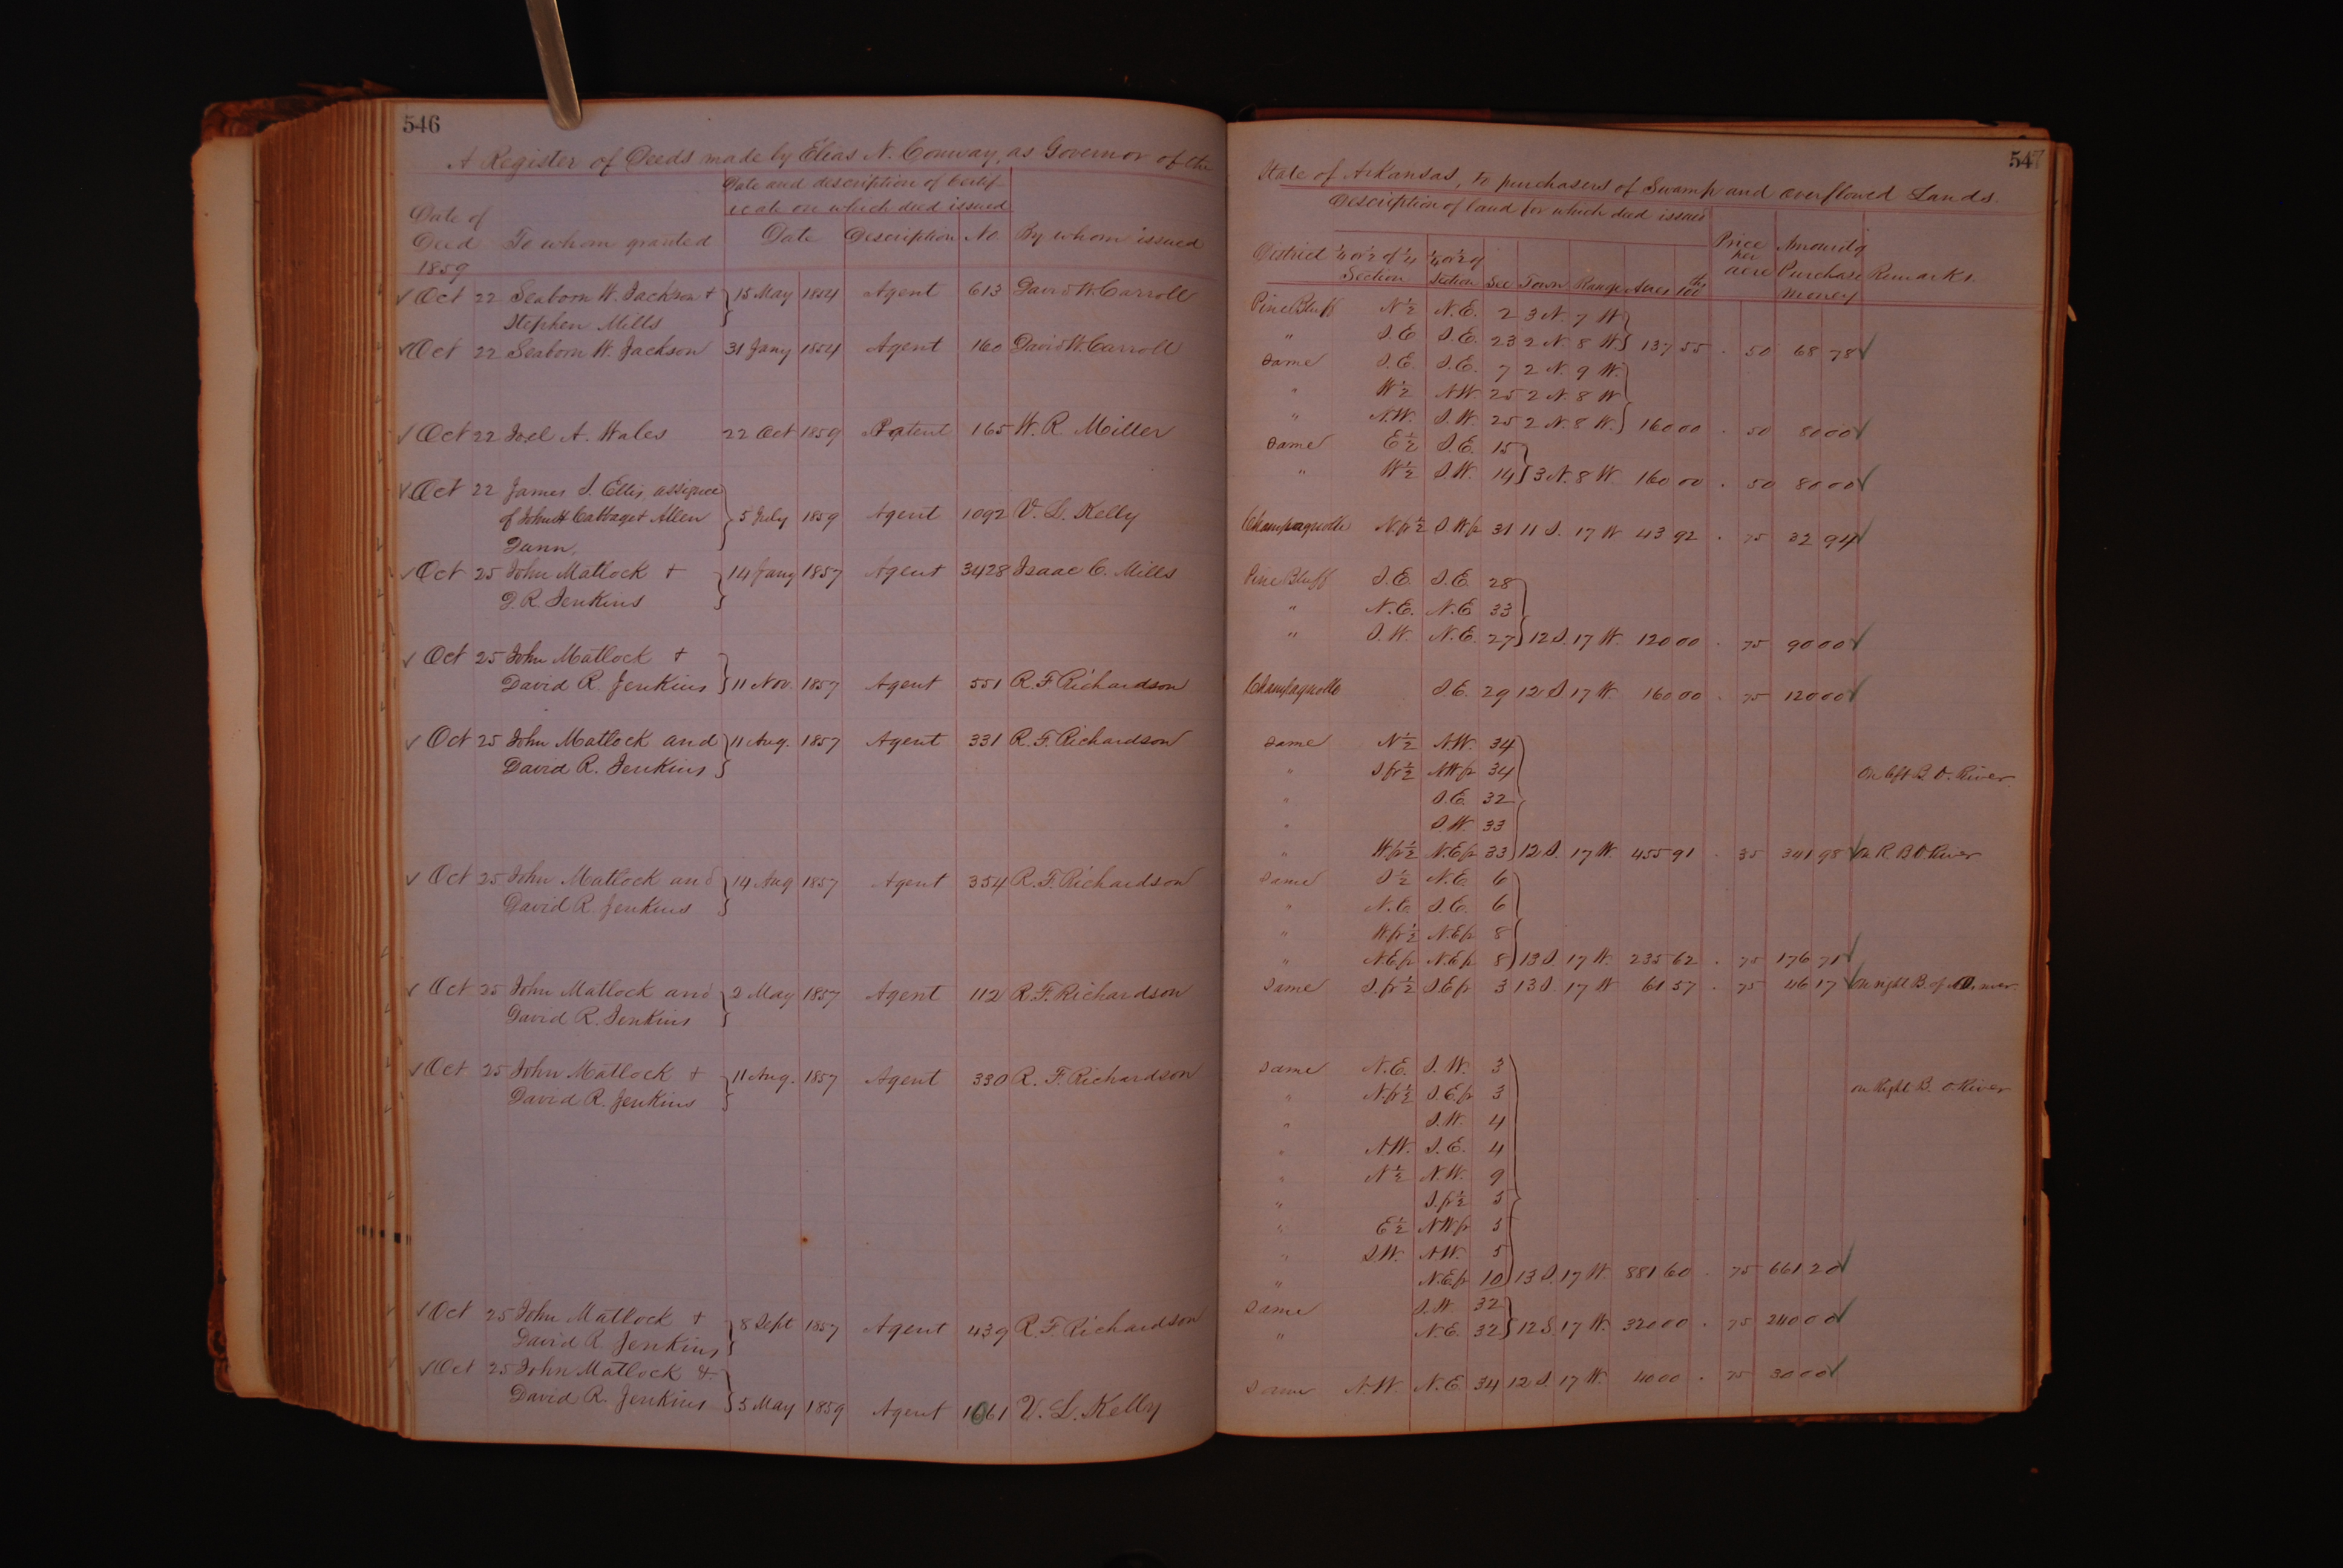 546
A Register of Deeds made by Elias N. Conway, as Governor of the
Date and description of Certif-
icate on which deed issued
Date of
Deed To whom granted Date Description No. By whom issued
1859
Oct 22 Seaborn W. Jackson + 15 May 1854 Agent 613 David W. Carroll
Stephen Mills
Oct 22 Seaborn W. Jackson 31 Jany 1854 Agent 160 David W. Carroll
Oct 22 Joel A. Wales 22 Oct 1859 Patent 165 W. R. Miller
Oct 22 James S. Ellis, assignee
of John H Cabbage + Allen 5 July 1859 Agent 1092 V. L. Kelly
Dunn.
Oct 25 John Matlock + 14 Jany 1857 Agent 3428 Isaac C. Mills
D. R. Jenkins
Oct 25 John Matlock +
David R. Jenkins 11 Nov. 1857 Agent 551 R. F. Richardson
Oct 25 John Matlock and 11 Aug. 1857 Agent 331 R. F. Richardson
David R. Jenkins
Oct 25 John Matlock and 14 Aug 1857 Agent 354 R. F. Richardson
David R. Jenkins
Oct 25 John Matlock and 2 May 1857 Agent 112 R. F. Richardson
David R. Jenkins
Oct 25 John Matlock + 11 Aug. 1857 Agent 330 R. F. Richardson
David R. Jenkins
Oct 25 John Matlock + 8 Sept 1857 Agent 439 R. F. Richardson
David R. Jenkins
Oct 25 John Matlock &
David R. Jenkins 5 May 1859 Agent 1061 V. L. Kelly
547
State of Arkansas, to purchasers of Swamp and overflowed Lands.
Description of land for which deed issues
District ¼ or ½ of ¼ ¼ or ½ of Price Amount of
Section Section Sec Town Range Acres 100ths per acre Purchase money Remarks.
Pine Bluff N ½ N.E. 2 3 N. 7 W
" S.E. S.E. 23 2 N. 8 W 137 55 . 50 68 78
Same S.E. S.E. 7 2 N. 9 W.
" W ½ N.W. 25 2 N. 8 W
" N.W. S.W. 25 2 N. 8 W. 160 00 . 50 80 00
Same E ½ S.E. 15
" W ½ S.W. 14 3 N. 8 W. 160 00 . 50 80 00
Champagnolle N. fr ½ S. W fr 31 11 S. 17 W 43 92 . 75 32 94
Pine Bluff S.E. S.E. 28
" N.E. N.E 33
" S.W. N.E. 27 12 S. 17 W. 120 00 . 75 90 00
Champagnolle S.E. 29 12 S 17 W. 160 00 . 75 120 00
Same N ½ N.W. 34
" S fr ½ N W fr 34 On left B. O. River.
" S.E. 32
" S.W. 33
" W fr ½ N. E fr 33 12 S. 17 W. 455 91 . 35 341 98 On R. B O. River
Same S ½ N.E. 6
" N.E. S.E. 6
" W fr ½ N. E fr 8
" N. E fr N. E fr 8 13 S 17 W. 235 62 . 75 176 71
Same S. fr ½ S E fr 3 13 S. 17 W 61 57 . 75 46 17 On right B. of O. River.
Same N.E. S.W. 3
" N. fr ½ S. E fr 3 on Right B. O. River
" S.W. 4
" N.W. S.E. 4
" N ½ N.W. 9
" S. fr ½ 5
" E ½ N W fr 5
" S.W. N.W. 5
" N.E. fr 10 13 S. 17 W. 881 60 . 75 661 20
Same S.W. 32
" N.E. 32 12 S. 17 W. 320 00 . 75 240 00
Same N.W. N.E. 34 12 S. 17 W. 40 00 . 75 30 00